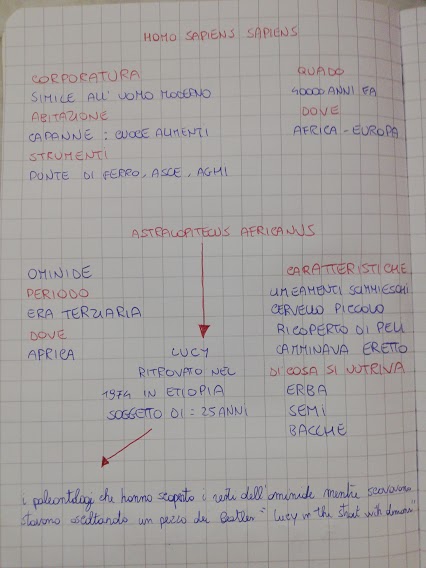 HOMO SAPIENS SAPIENS
CORPORATURA
SIMILE ALL' UOMO MODERNO
ABITAZIONE
CAPANNE : CUOCE ALIMENTI
STRUMENTI
PUNTE DI FERRO, ASCE, AGHI
QUADO
40000 ANNI FA
DOVE
AFRICA - EUROPA
ASTRALOPITECUS AFRICANUS
OMINIDE
PERIODO
ERA TERZIARIA
DOVE
AFRICA
LUCY
RITROVATO NEL
1974 IN ETIOPIA
SOGGETTO DI : 25 ANNI
CARATTERISTICHE
LINEAMENTI SCIMMIESCHI
CERVELLO PICCOLO
RICOPERTO DI PELI
CAMMINAVA ERETTO
DI COSA SI NUTRIVA
ERBA
SEMI
BACCHE
i paleontologi che hanno scoperto i resti dell'ominide mentre scavavano
stavano ascoltando un pezzo dei Beatles " Lucy in the with